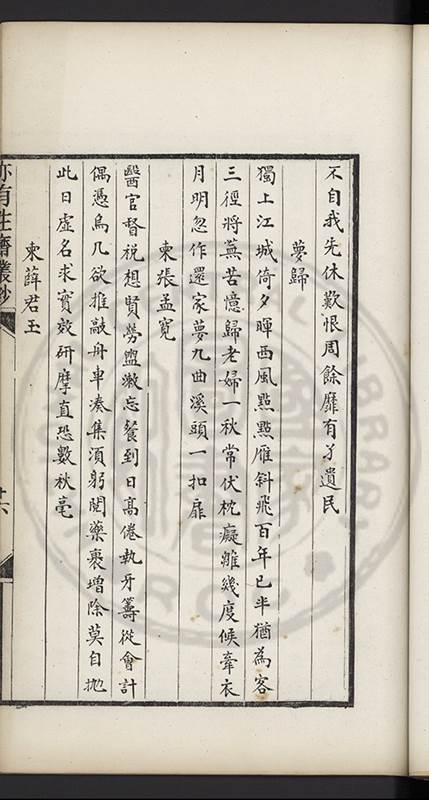 不自我先休歎恨周餘靡有孑遺民
夢歸
獨上江城倚夕暉西風點點雁斜飛百年已半猶為客
三徑將蕪苦憶歸老婦一秋常伏枕癡雛幾度候牽衣
月明忽作還家夢九曲溪頭一扣扉
柬張孟寬
醫官督税想賢勞盥漱忘餐到日高倦執牙籌從會計
偶憑烏几欲推敲舟車湊集須躬閱藥裹增除莫自拋
此日虛名求實效研摩直恐數秋毫
柬薛君玉
亦有生齋叢鈔
十六